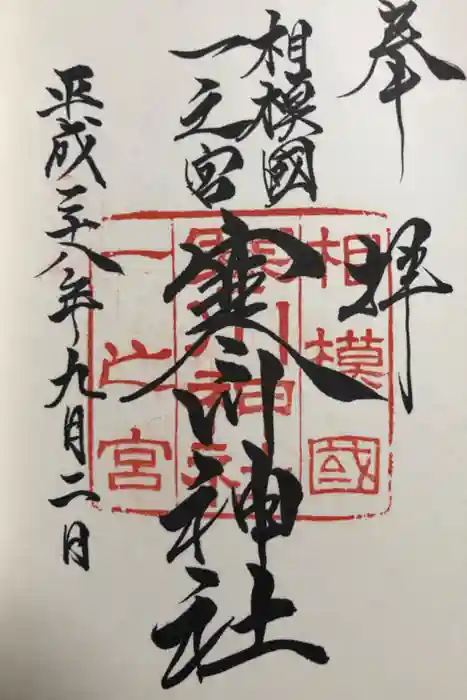 奉拝
相模國
一之宮
寒川神社
平成二十八年九月二日
相模國
寒川神社
一之宮